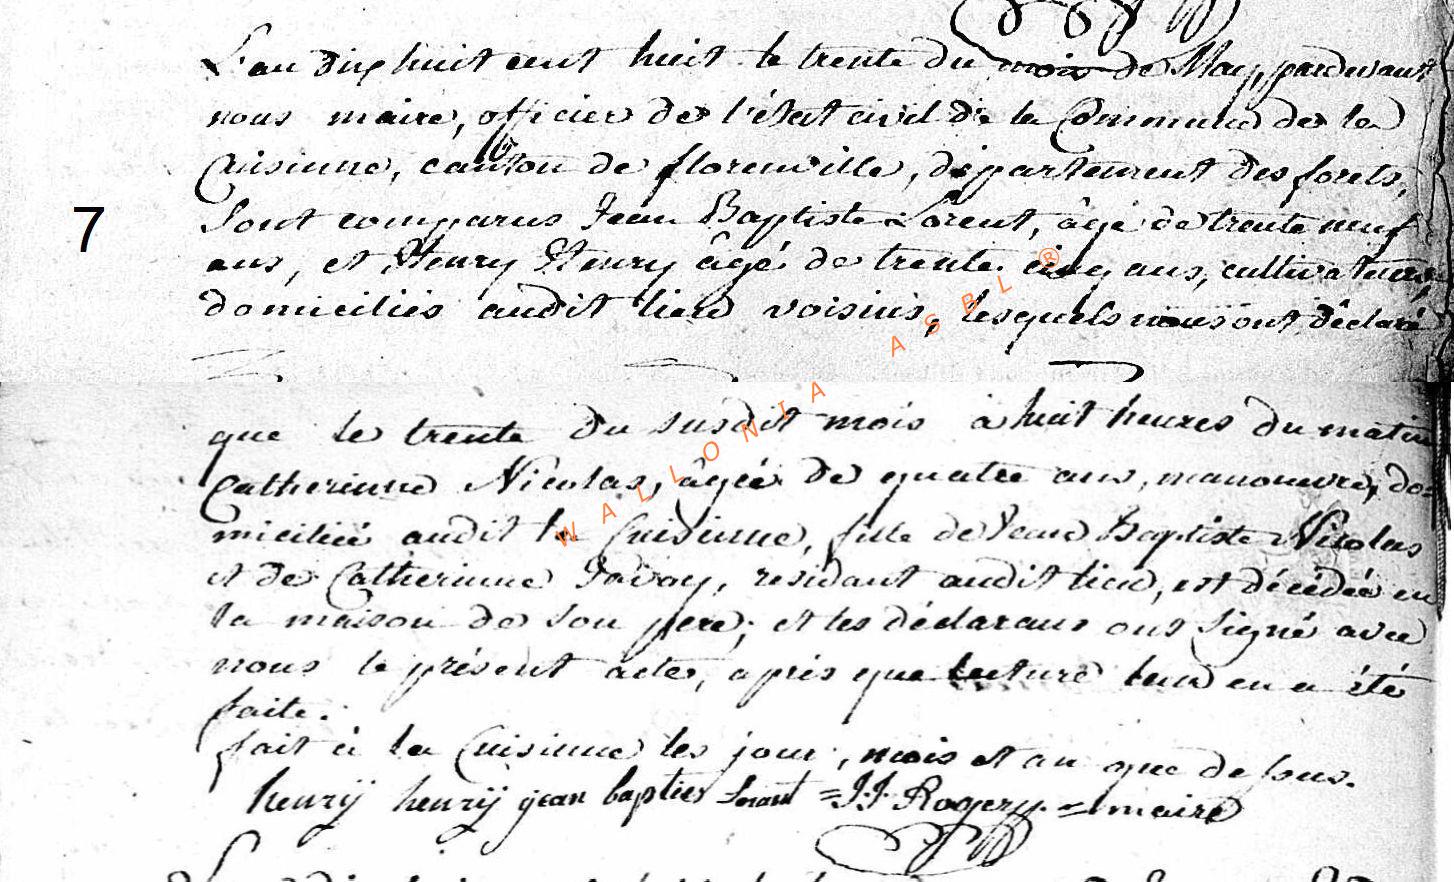 L'an dix huit cent huit le trente du mois de May, pardevant
nous maire, officier de l'état civil de la Commune de la
Cuisinne, canton de florenville, département des forets,
Sont comparus Jean Baptiste Lorent, âgé de trente neuf
7
ans, et Henry Henry âgé de trente cinq ans, cultivateurs,
domiciliés audit lieu voisins, lesquels nous ont déclaré
WALLONIA ASBL ®
que le trente du susdit mois à huit heures du matin
Catherinne Nicolas, âgée de quatre ans, manouvre, do=
miciliée audit la Cuisinne, fille de Jean Baptiste Nicolas
et de Catherinne residant audit lieu, est décédée en
la maison de son pere; et les déclarans ont Signé avec
nous le présent acte, après que lecture leur en a été
faite.
fait à la Cuisinne les jour, mois et an que dessus.
henrÿ henrÿ jean bapties Lorant = J.J. Rogery = maire